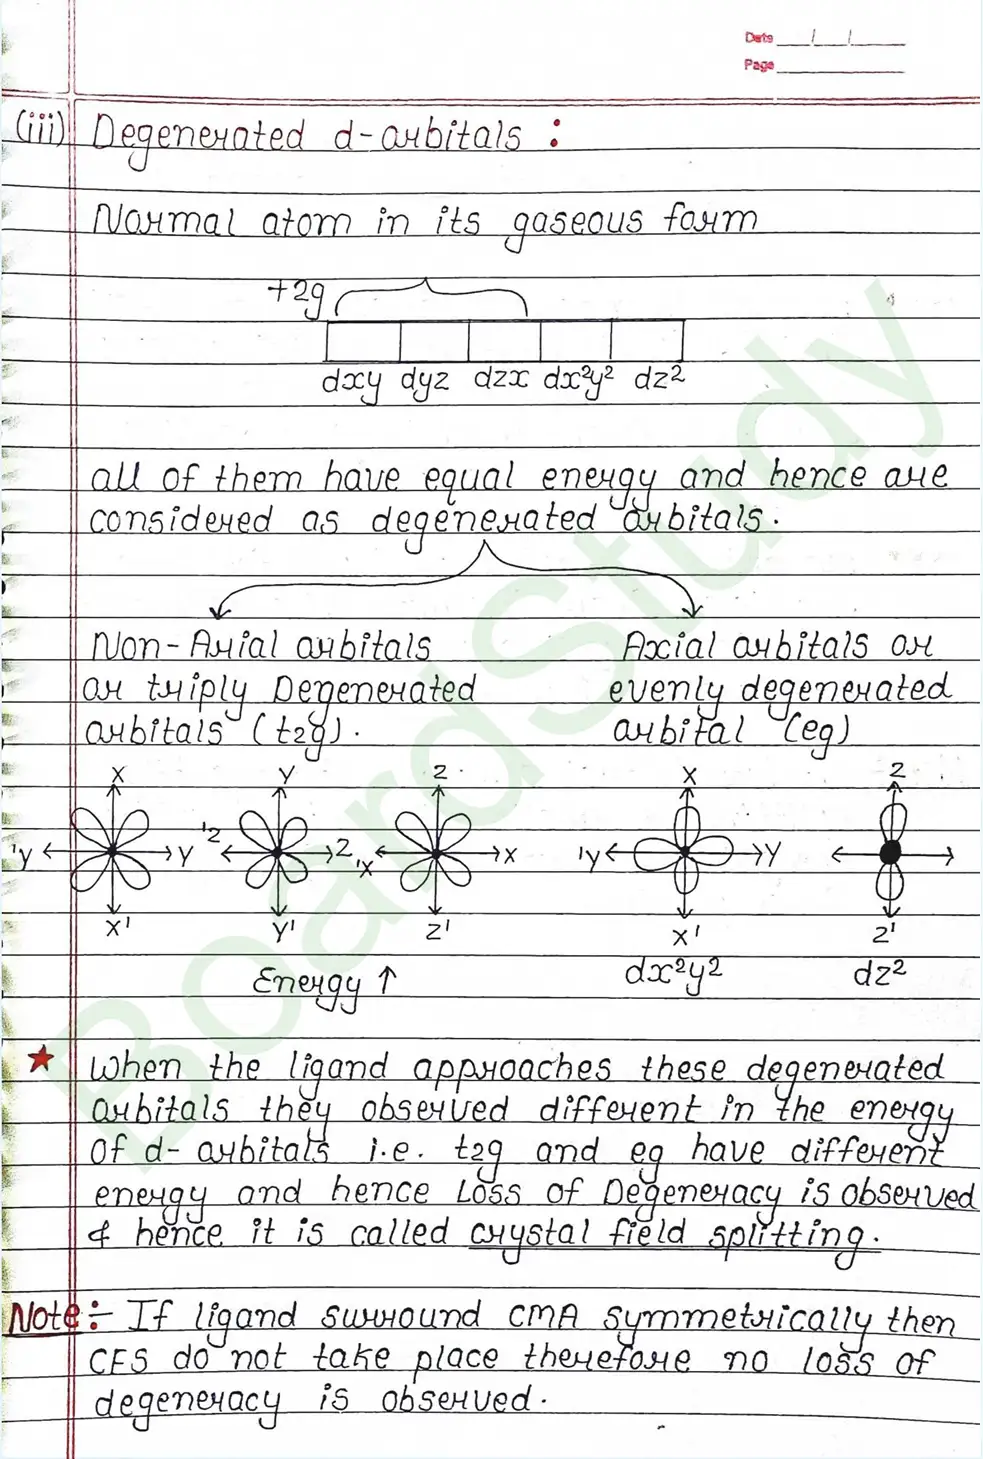 Date / /
Page
(iii) Degenerated d-orbitals :
Normal atom in its gaseous form
+2g
dxy dyz dzx dx²y² dz²
all of them have equal energy and hence are
considered as degenerated orbitals.
Non-Axial orbitals
or triply Degenerated
orbitals (t2g).
Axial orbitals or
evenly degenerated
orbital (eg)
X Y Z X Z
'y Y 'z Z 'x X 'y Y
X' Y' Z' X' Z'
Energy ↑
dx²y² dz²
★ When the ligand approaches these degenerated
orbitals they observed different in the energy
of d- orbitals i.e. t2g and eg have different
energy and hence Loss of Degeneracy is observed
& hence it is called crystal field splitting.
Note:- If ligand surround CMA symmetrically then
CFS do not take place therefore no loss of
degeneracy is observed.
BoardStudy